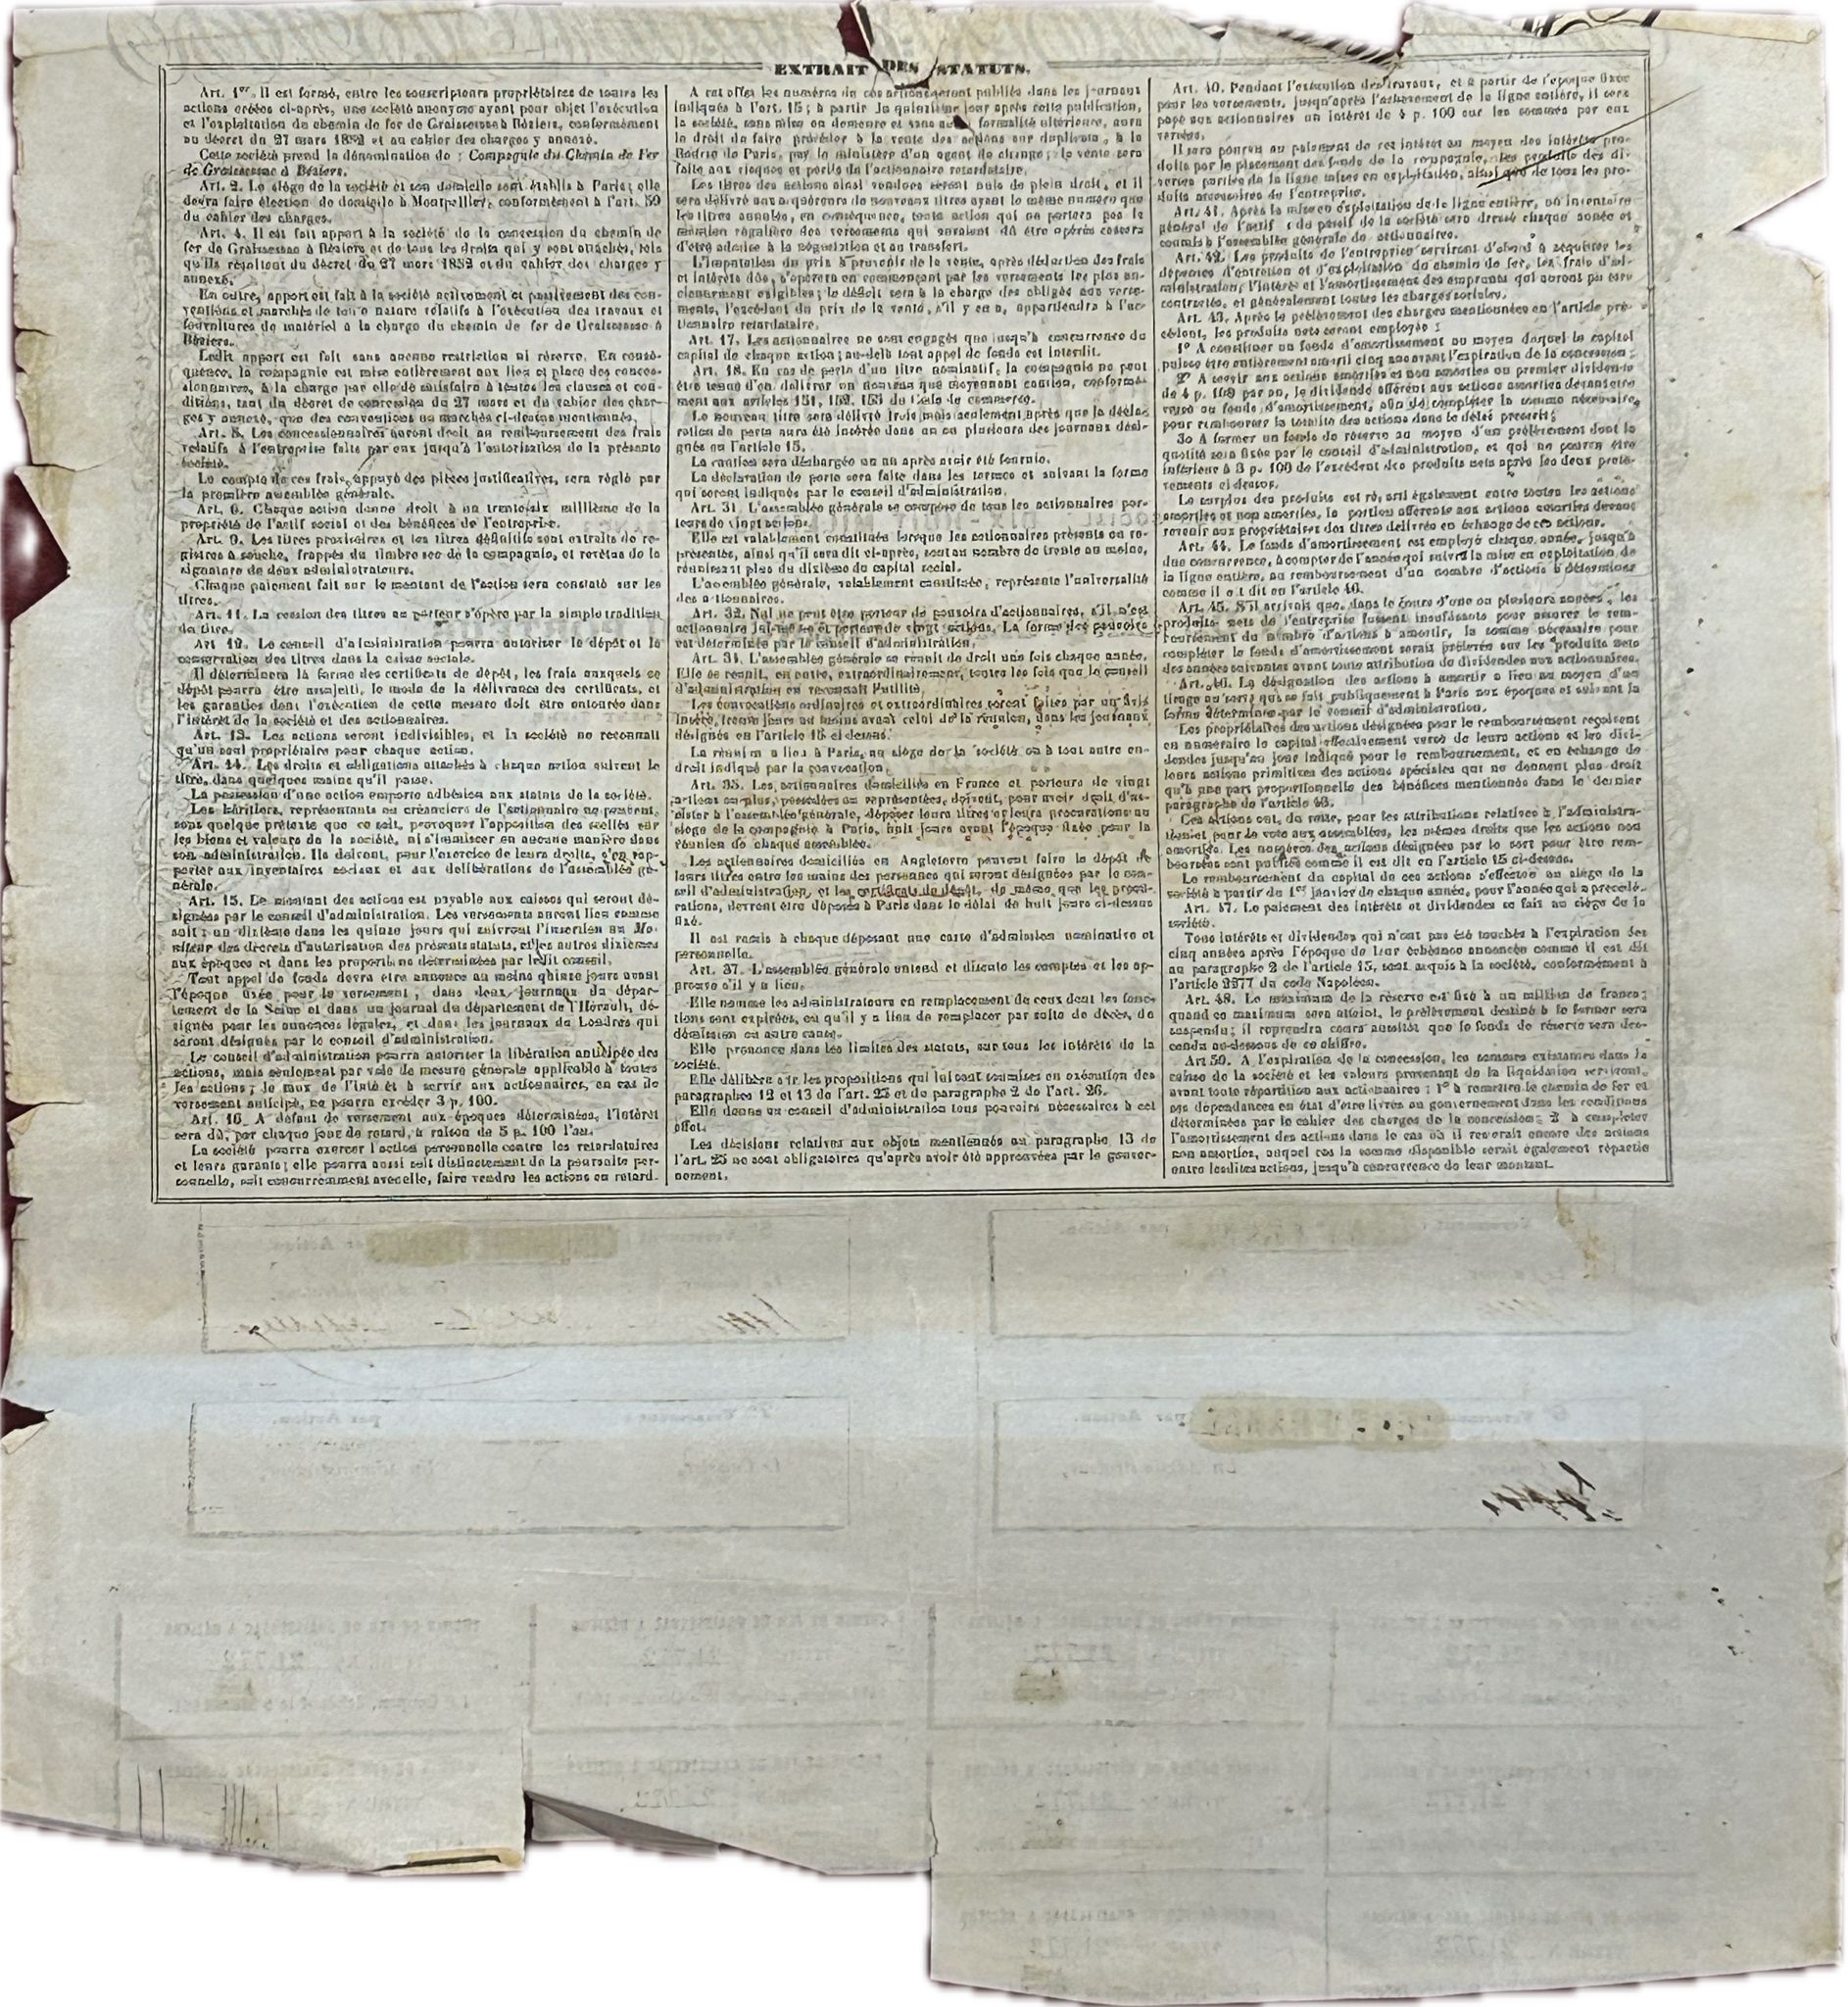 EXTRAIT DES STATUTS.
Art. 1er. Il est formé, entre les souscripteurs propriétaires de toutes les
actions créées ci-après, une société anonyme ayant pour objet l'exécution
et l'exploitation du chemin de fer de Graissessac à Béziers, conformément
au décret du 27 mars 1852 et au cahier des charges y annexé.
Cette société prend la dénomination de : Compagnie du Chemin de Fer
de Graissessac à Béziers.
Art. 2. Le siège de la société et son domicile sont établis à Paris; elle
devra faire élection de domicile à Montpellier, conformément à l'art. 59
du cahier des charges.
Art. 4. Il est fait apport à la société de la concession du chemin de
fer de Graissessac à Béziers et de tous les droits qui y sont attachés, tels
qu'ils résultent du décret du 27 mars 1852 et du cahier des charges y
annexé.
En outre, apport est fait à la société activement et passivement des con-
ventions et marchés de toute nature relatifs à l'exécution des travaux et
fournitures de matériel à la charge du chemin de fer de Graissessac à
Béziers.
Ledit apport est fait sans aucune restriction ni réserve. En consé-
quence, la compagnie est mise entièrement aux lieu et place des conces-
sionnaires, à la charge par elle de satisfaire à toutes les clauses et con-
ditions, tant du décret de concession du 27 mars et du cahier des char-
ges y annexé, que des conventions ou marchés ci-dessus mentionnés.
Art. 5. Les concessionnaires auront droit au remboursement des frais
relatifs à l'entreprise faits par eux jusqu'à l'autorisation de la présente
société.
Le compte de ces frais, appuyé des pièces justificatives, sera réglé par
la première assemblée générale.
Art. 6. Chaque action donne droit à un trentesix millième de la
propriété de l'actif social et des bénéfices de l'entreprise.
Art. 9. Les titres provisoires et les titres définitifs sont extraits de re-
gistres à souche, frappés du timbre sec de la compagnie, et revêtus de la
signature de deux administrateurs.
Chaque paiement fait sur le montant de l'action sera constaté sur les
titres.
Art. 11. La cession des titres au porteur s'opère par la simple tradition
du titre.
Art 12. Le conseil d'administration pourra autoriser le dépôt et la
conservation des titres dans la caisse sociale.
Il déterminera la forme des certificats de dépôt, les frais auxquels ce
dépôt pourra être assujetti, le mode de la délivrance des certificats, et
les garanties dont l'exécution de cette mesure doit être entourée dans
l'intérêt de la société et des actionnaires.
Art. 13. Les actions seront indivisibles, et la société ne reconnaît
qu'un seul propriétaire pour chaque action.
Art. 14. Les droits et obligations attachés à chaque action suivent le
titre, dans quelques mains qu'il passe.
La possession d'une action emporte adhésion aux statuts de la société.
Les héritiers, représentants ou créanciers de l'actionnaire ne peuvent,
sous quelque prétexte que ce soit, provoquer l'apposition des scellés sur
les biens et valeurs de la société, ni s'immiscer en aucune manière dans
son administration. Ils doivent, pour l'exercice de leurs droits, s'en rap-
porter aux inventaires sociaux et aux délibérations de l'assemblée gé-
nérale.
Art. 15. Le montant des actions est payable aux caisses qui seront dé-
signées par le conseil d'administration. Les versements auront lieu comme
suit : un dixième dans les quinze jours qui suivront l'insertion au Mo-
niteur des décrets d'autorisation des présents statuts, et les autres dixièmes
aux époques et dans les proportions déterminées par ledit conseil.
Tout appel de fonds devra être annoncé au moins quinze jours avant
l'époque fixée pour le versement, dans deux journaux du dépar-
tement de la Seine et dans un journal du département de l'Hérault, dé-
signés pour les annonces légales, et dans les journaux de Londres qui
seront désignés par le conseil d'administration.
Le conseil d'administration pourra autoriser la libération anticipée des
actions, mais seulement par voie de mesure générale applicable à toutes
les actions; le taux de l'intérêt à servir aux actionnaires, en cas de
versement anticipé, ne pourra excéder 3 p. 100.
Art. 16. A défaut de versement aux époques déterminées, l'intérêt
sera dû, par chaque jour de retard, à raison de 5 p. 100 l'an.
La société pourra exercer l'action personnelle contre les retardataires
et leurs garants; elle pourra aussi soit distinctement de la poursuite per-
sonnelle, soit concurremment avec elle, faire vendre les actions en retard.
A cet effet les numéros de ces actions seront publiés dans les journaux
indiqués à l'art. 15; à partir du quinzième jour après cette publication,
la société, sans mise en demeure et sans autre formalité ultérieure, aura
le droit de faire procéder à la vente des actions sur duplicata, à la
Bourse de Paris, par le ministère d'un agent de change; la vente sera
faite aux risques et périls de l'actionnaire retardataire.
Les titres des actions ainsi vendues seront nuls de plein droit, et il
sera délivré aux acquéreurs de nouveaux titres ayant le même numéro que
les titres annulés, en conséquence, toute action qui ne portera pas la
mention régulière des versements qui auraient dû être opérés cessera
d'être admise à la négociation et au transfert.
L'imputation du prix à provenir de la vente, après déduction des frais
et intérêts dus, s'opérera en commençant par les versements les plus an-
ciennement exigibles; le déficit sera à la charge des obligés aux verse-
ments, l'excédant du prix de la vente, s'il y en a, appartiendra à l'ac-
tionnaire retardataire.
Art. 17. Les actionnaires ne sont engagés que jusqu'à concurrence du
capital de chaque action; au-delà tout appel de fonds est interdit.
Art. 18. En cas de perte d'un titre nominatif, la compagnie ne peut
être tenue d'en délivrer un nouveau que moyennant caution, conformé-
ment aux articles 151, 152, 155 du Code de commerce.
Le nouveau titre sera délivré trois mois seulement après que la décla-
ration de perte aura été insérée dans un ou plusieurs des journaux dési-
gnés en l'article 15.
La caution sera déchargée un an après avoir été fournie.
La déclaration de perte sera faite dans les termes et suivant la forme
qui seront indiqués par le conseil d'administration.
Art. 31. L'assemblée générale se compose de tous les actionnaires por-
teurs de vingt actions.
Elle est valablement constituée lorsque les actionnaires présents ou re-
présentés, ainsi qu'il sera dit ci-après, sont au nombre de trente au moins,
réunissant plus du dixième du capital social.
L'assemblée générale, valablement constituée, représente l'universalité
des actionnaires.
Art. 32. Nul ne peut être porteur de pouvoirs d'actionnaires, s'il n'est
actionnaire lui-même et porteur de vingt actions. La forme des pouvoirs
est déterminée par le conseil d'administration.
Art. 34. L'assemblée générale se réunit de droit une fois chaque année.
Elle se réunit, en outre, extraordinairement, toutes les fois que le conseil
d'administration en reconnaît l'utilité.
Les convocations ordinaires et extraordinaires seront faites par un avis
inséré, trente jours au moins avant celui de la réunion, dans les journaux
désignés en l'article 15 ci-dessus.
La réunion a lieu à Paris, au siège de la société ou à tout autre en-
droit indiqué par la convocation.
Art. 35. Les actionnaires domiciliés en France et porteurs de vingt
actions ou plus, possédées ou représentées, doivent, pour avoir droit d'as-
sister à l'assemblée générale, déposer leurs titres et leurs procurations au
siège de la compagnie à Paris, huit jours avant l'époque fixée pour la
réunion de chaque assemblée.
Les actionnaires domiciliés en Angleterre peuvent faire le dépôt de
leurs titres entre les mains des personnes qui seront désignées par le con-
seil d'administration, et les certificats de dépôt, de même que les procu-
rations, devront être déposés à Paris dans le délai de huit jours ci-dessus
fixé.
Il est remis à chaque déposant une carte d'admission nominative et
personnelle.
Art. 37. L'assemblée générale entend et discute les comptes et les ap-
prouve s'il y a lieu.
Elle nomme les administrateurs en remplacement de ceux dont les fonc-
tions sont expirées, ou qu'il y a lieu de remplacer par suite de décès, de
démission ou autre cause.
Elle prononce dans les limites des statuts, sur tous les intérêts de la
société.
Elle délibère sur les propositions qui lui sont soumises en exécution des
paragraphes 12 et 13 de l'art. 25 et du paragraphe 2 de l'art. 26.
Elle donne au conseil d'administration tous pouvoirs nécessaires à cet
effet.
Les décisions relatives aux objets mentionnés au paragraphe 13 de
l'art. 25 ne sont obligatoires qu'après avoir été approuvées par le gouver-
nement.
Art. 40. Pendant l'exécution des travaux, et à partir de l'époque fixée
pour les versements, jusqu'après l'achèvement de la ligne entière, il sera
payé aux actionnaires un intérêt de 4 p. 100 sur les sommes par eux
versées.
Il sera pourvu au paiement de cet intérêt au moyen des intérêts pro-
duits par le placement des fonds de la compagnie, des produits des di-
verses parties de la ligne mises en exploitation, ainsi que de tous les pro-
duits accessoires de l'entreprise.
Art. 41. Après la mise en exploitation de la ligne entière, un inventaire
général de l'actif et du passif de la société sera dressé chaque année et
soumis à l'assemblée générale des actionnaires.
Art. 42. Les produits de l'entreprise serviront d'abord à acquitter les
dépenses d'entretien et d'exploitation du chemin de fer, les frais d'ad-
ministration, l'intérêt et l'amortissement des emprunts qui auront pu être
contractés, et généralement toutes les charges sociales.
Art. 43. Après le prélèvement des charges mentionnées en l'article pré-
cédent, les produits nets seront employés :
1° A constituer un fonds d'amortissement au moyen duquel le capital
puisse être entièrement amorti cinq ans avant l'expiration de la concession;
2° A servir aux actions amorties et non amorties un premier dividende
de 4 p. 100 par an, le dividende afférent aux actions amorties devant être
versé au fonds d'amortissement, afin de compléter la somme nécessaire,
pour rembourser la totalité des actions dans le délai prescrit;
3o A former un fonds de réserve au moyen d'un prélèvement dont la
quotité sera fixée par le conseil d'administration, et qui ne pourra être
inférieure à 3 p. 100 de l'excédent des produits nets après les deux prélè-
vements ci-dessus.
Le surplus des produits est réparti également entre toutes les actions
amorties et non amorties, la portion afférente aux actions amorties devant
revenir aux propriétaires des titres délivrés en échange de ces actions.
Art. 44. Le fonds d'amortissement est employé chaque année, jusqu'à
due concurrence, à compter de l'année qui suivra la mise en exploitation de
la ligne entière, au remboursement d'un nombre d'actions à déterminer
comme il est dit en l'article 46.
Art. 45. S'il arrivait que, dans le cours d'une ou plusieurs années, les
produits nets de l'entreprise fussent insuffisants pour assurer le rem-
boursement du nombre d'actions à amortir, la somme nécessaire pour
compléter le fonds d'amortissement serait prélevée sur les produits nets
des années suivantes avant toute attribution de dividendes aux actionnaires.
Art. 46. La désignation des actions à amortir a lieu au moyen d'un
tirage au sort qui se fait publiquement à Paris aux époques et suivant la
forme déterminée par le conseil d'administration.
Les propriétaires des actions désignées pour le remboursement reçoivent
en numéraire le capital effectivement versé de leurs actions et les divi-
dendes jusqu'au jour indiqué pour le remboursement, et en échange de
leurs actions primitives des actions spéciales qui ne donnent plus droit
qu'à une part proportionnelle des bénéfices mentionnée dans le dernier
paragraphe de l'article 43.
Ces actions ont, du reste, pour les attributions relatives à l'administra-
tion et pour le vote aux assemblées, les mêmes droits que les actions non
amorties. Les numéros des actions désignées par le sort pour être rem-
boursées sont publiés comme il est dit en l'article 15 ci-dessus.
Le remboursement du capital de ces actions s'effectue au siège de la
société à partir du 1er janvier de chaque année, pour l'année qui a précédé.
Art. 47. Le paiement des intérêts et dividendes se fait au siège de la
société.
Tous intérêts et dividendes qui n'ont pas été touchés à l'expiration des
cinq années après l'époque de leur échéance annoncée comme il est dit
au paragraphe 2 de l'article 15, sont acquis à la société, conformément à
l'article 2277 du code Napoléon.
Art. 48. Le maximum de la réserve est fixé à un million de francs;
quand ce maximum sera atteint, le prélèvement destiné à le former sera
suspendu; il reprendra cours aussitôt que le fonds de réserve sera des-
cendu au-dessous de ce chiffre.
Art 50. A l'expiration de la concession, les sommes existantes dans la
caisse de la société et les valeurs provenant de la liquidation serviront,
avant toute répartition aux actionnaires : 1° à remettre le chemin de fer et
ses dépendances en état d'être livrés au gouvernement dans les conditions
déterminées par le cahier des charges de la concession; 2° à compléter
l'amortissement des actions dans le cas où il resterait encore des actions
non amorties, auquel cas la somme disponible serait également répartie
entre lesdites actions, jusqu'à concurrence de leur montant.